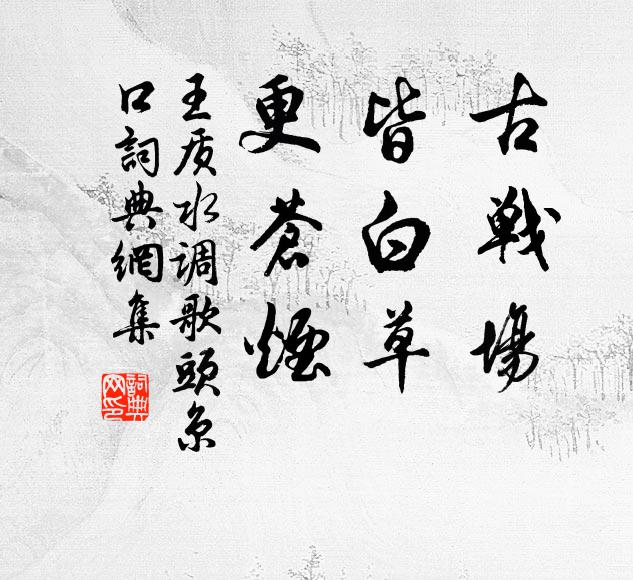 古戰場
皆白草
更蒼煙
王质水调歌頭京
口詞典網集
詞典
网印